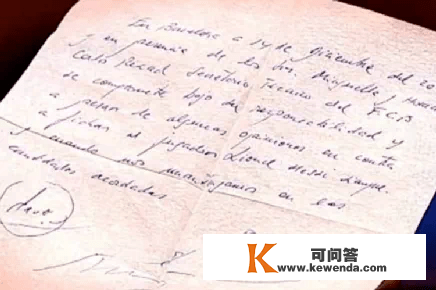 En Barcelona a 14 de Diciembre del 20
y en presencia de los Srs. Minguella y Horacio
Carlos Rexach Secretario Técnico del F.C.B
se compromete bajo su responsabilidad y
a pesar de algunas opiniones en contra
a fichar al jugador Lionel Messi siempre
y cuando nos mantengamos en las
cantidades acordadas
K 可问答
www.kewenda.com